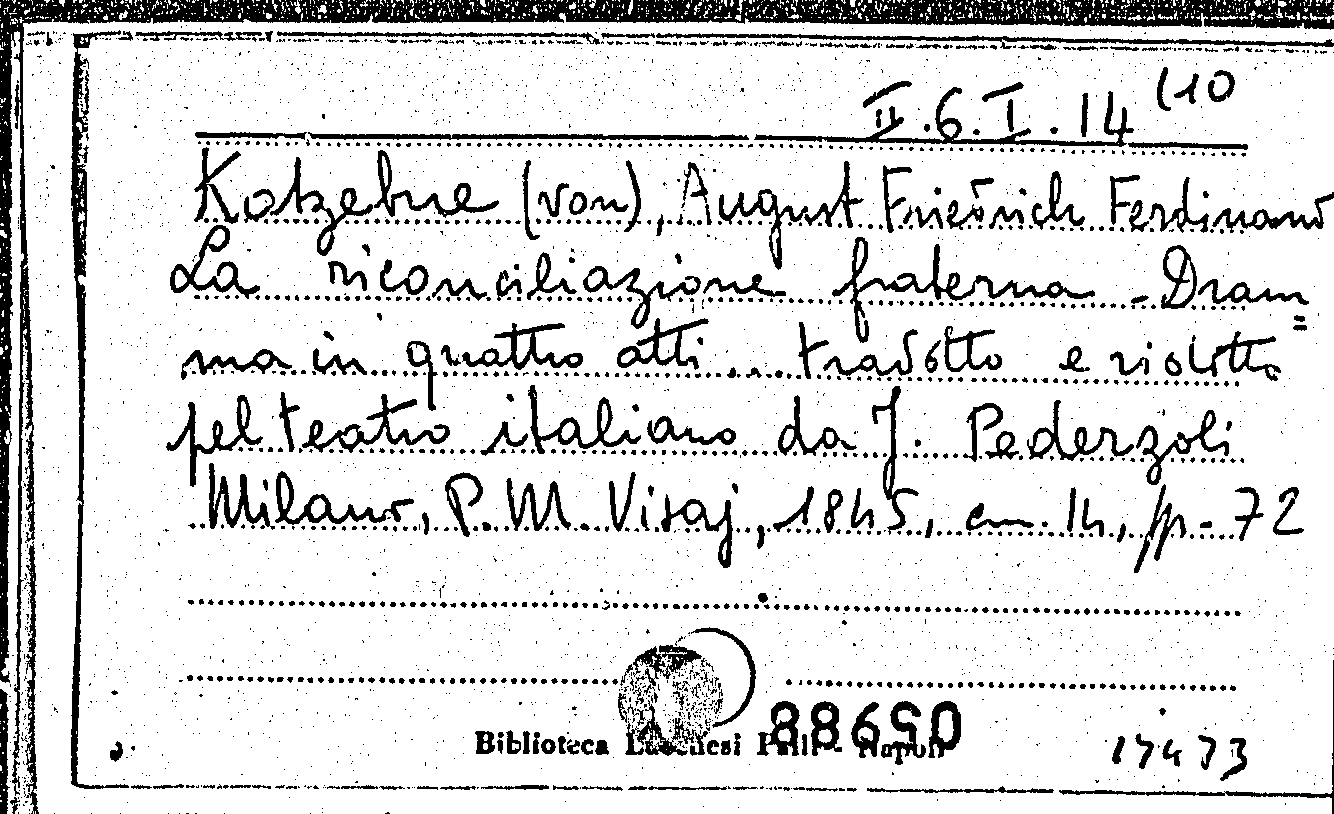 II.6.I.14(10
Kotzebue (von), August Friedrich Ferdinand
La riconciliazione fraterna - Dram=
ma in quattro atti ... tradotto e ridotto
pel teatro italiano da J. Pederzoli
Milano, P. M. Visaj, 1845, cm. 14, pp. 72
Biblioteca Lucchesi Palli - Napoli
17473